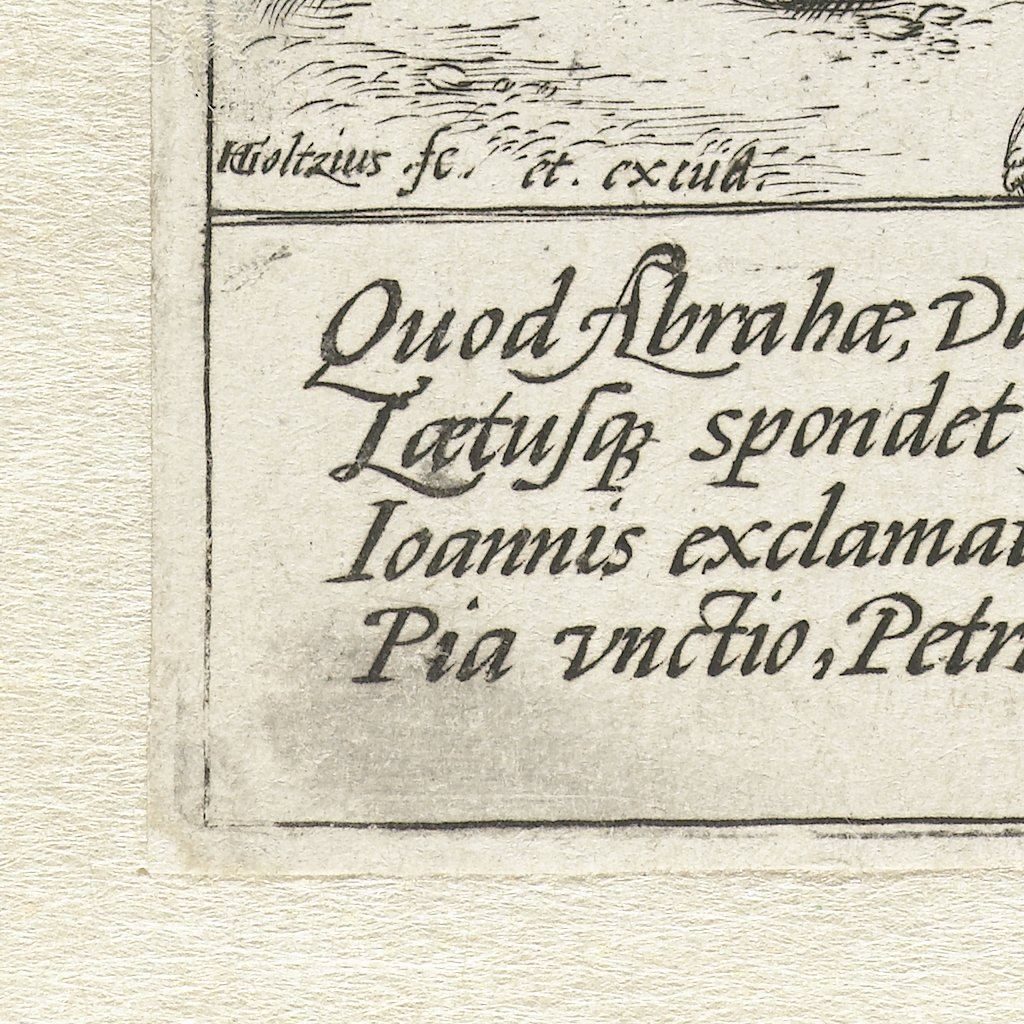 HGoltzius .fc. et. excud.
Quod Abrahæ, Da
Lætusq; spondet
Ioannis exclamat
Pia vnctio, Petri